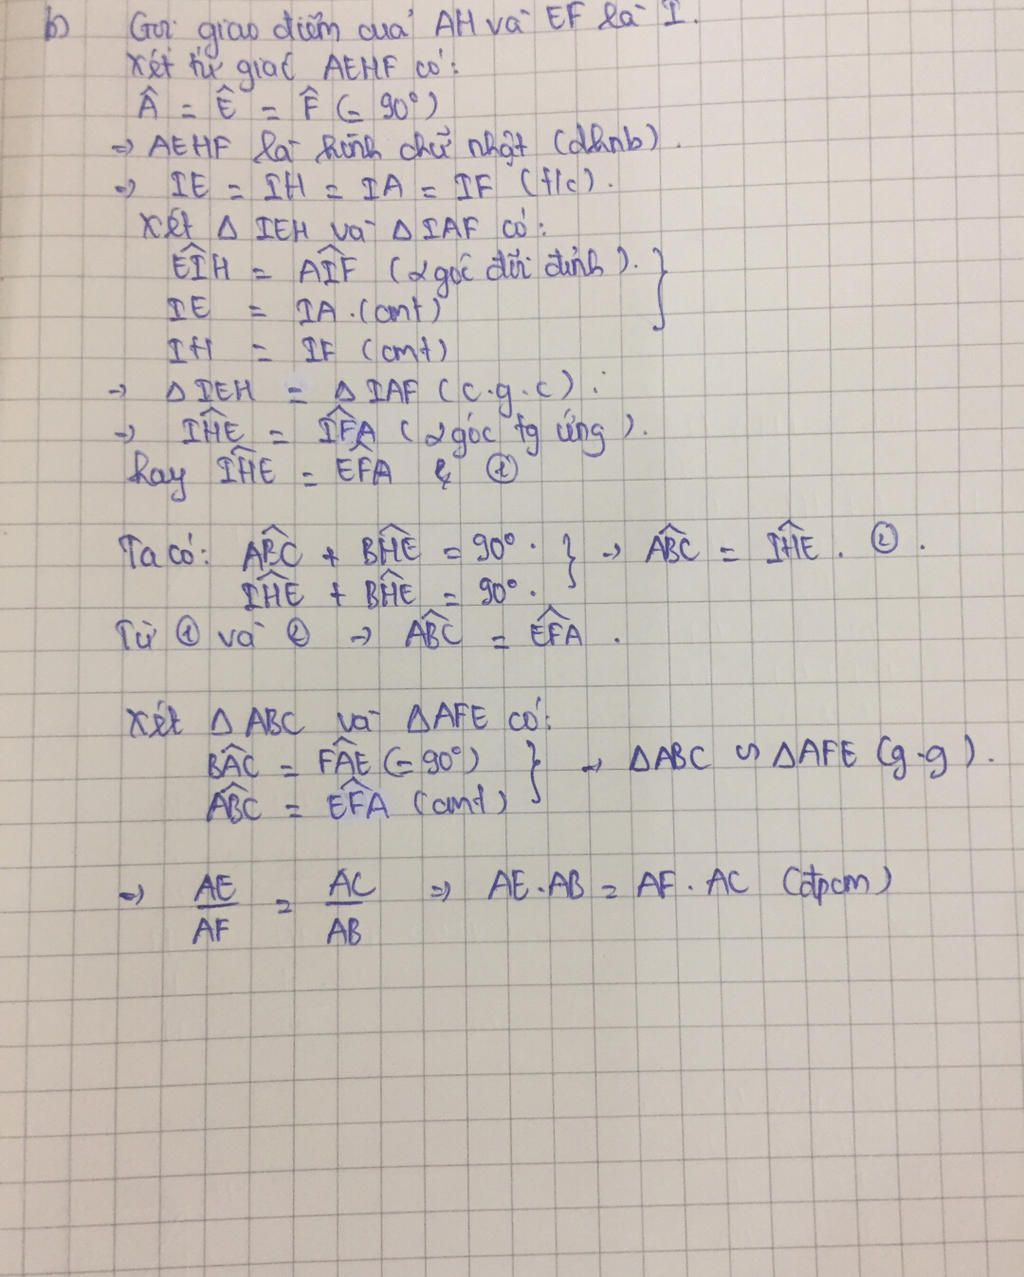 b) Gọi giao điểm của AH và EF là I.
Xét tứ giác AEHF có:
Â = Ê = F̂ (= 90°)
⇒ AEHF là hình chữ nhật (dhnb).
⇒ IE = IH = IA = IF (t/c).
Xét Δ IEH và Δ IAF có:
EÎH = AÎF (2 góc đối đỉnh). }
IE = IA. (cmt)
IH = IF (cmt)
→ Δ IEH = Δ IAF (c.g.c).
→ IĤE = IF̂A (2 góc tg ứng).
hay IĤE = EF̂A ①
Ta có: AB̂C + BĤE = 90°. } → AB̂C = IĤE. ②.
IĤE + BĤE = 90°.
Từ ① và ② → AB̂C = EF̂A.
Xét Δ ABC và ΔAFE có:
BÂC = FÂE (= 90°) } → ΔABC ∽ ΔAFE (g.g).
AB̂C = EF̂A (cmt)
⇒ AE/AF = AC/AB ⇒ AE.AB = AF.AC (đpcm)